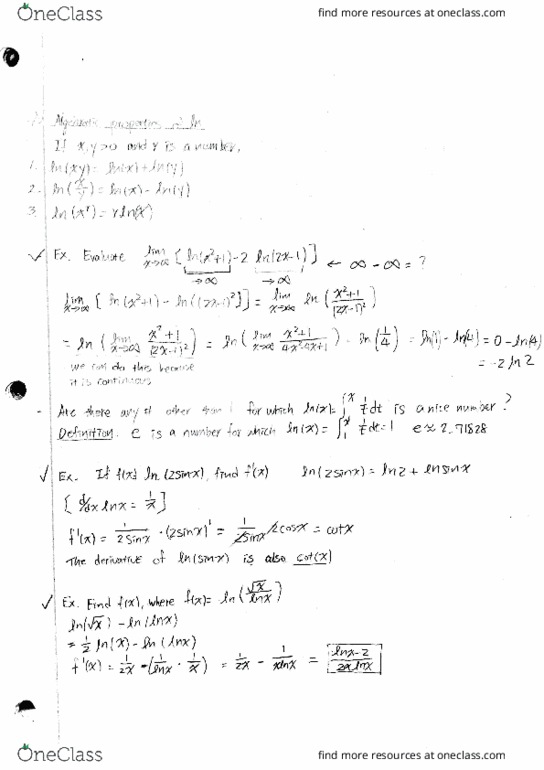 OneClass
find more resources at oneclass.com
Algebraic properties of ln
If x,y>0 and r is a number,
1. ln(xy)= ln(x)+ln(y)
2. ln(x/y)= ln(x)- ln(y)
3. ln(x^r)= rln(x)
✓ Ex. Evaluate lim x→∞ [ln(x²+1)-2 ln(2x-1)] ← ∞ - ∞ = ?
→∞ →∞
lim x→∞ [ln(x²+1) - ln((2x-1)²] = lim x→∞ ln(x²+1/(2x-1)²)
= ln(lim x→∞ x²+1/(2x-1)²) = ln(lim x→∞ x²+1/4x²-4x+1) = ln(1/4) = ln(1) - ln(4) = 0 - ln(4)
we can do this because = -2 ln 2
it is continuous
- Are there any # other than 1 for which ln(x)= ∫₁ˣ 1/t dt is a nice number?
Definition. e is a number for which ln(x)= ∫₁ˣ 1/t dt=1 e≈2.71828
✓ Ex. If f(x) ln(2sinx), find f'(x) ln(2sinx)= ln2 + lnsinx
[d/dx lnx = 1/x]
f'(x)= 1/2sinx · (2sinx)' = 1/2sinx · 2cosx = cotx
The derivative of ln(sinx) is also cot(x)
✓ Ex. Find f(x), where f(x)= ln(√x/lnx)
ln(√x) - ln(lnx)
= 1/2 ln(x) - ln(lnx)
f'(x)= 1/2x - (1/lnx · 1/x) = 1/2x - 1/xlnx = lnx-2/2xlnx
OneClass
find more resources at oneclass.com